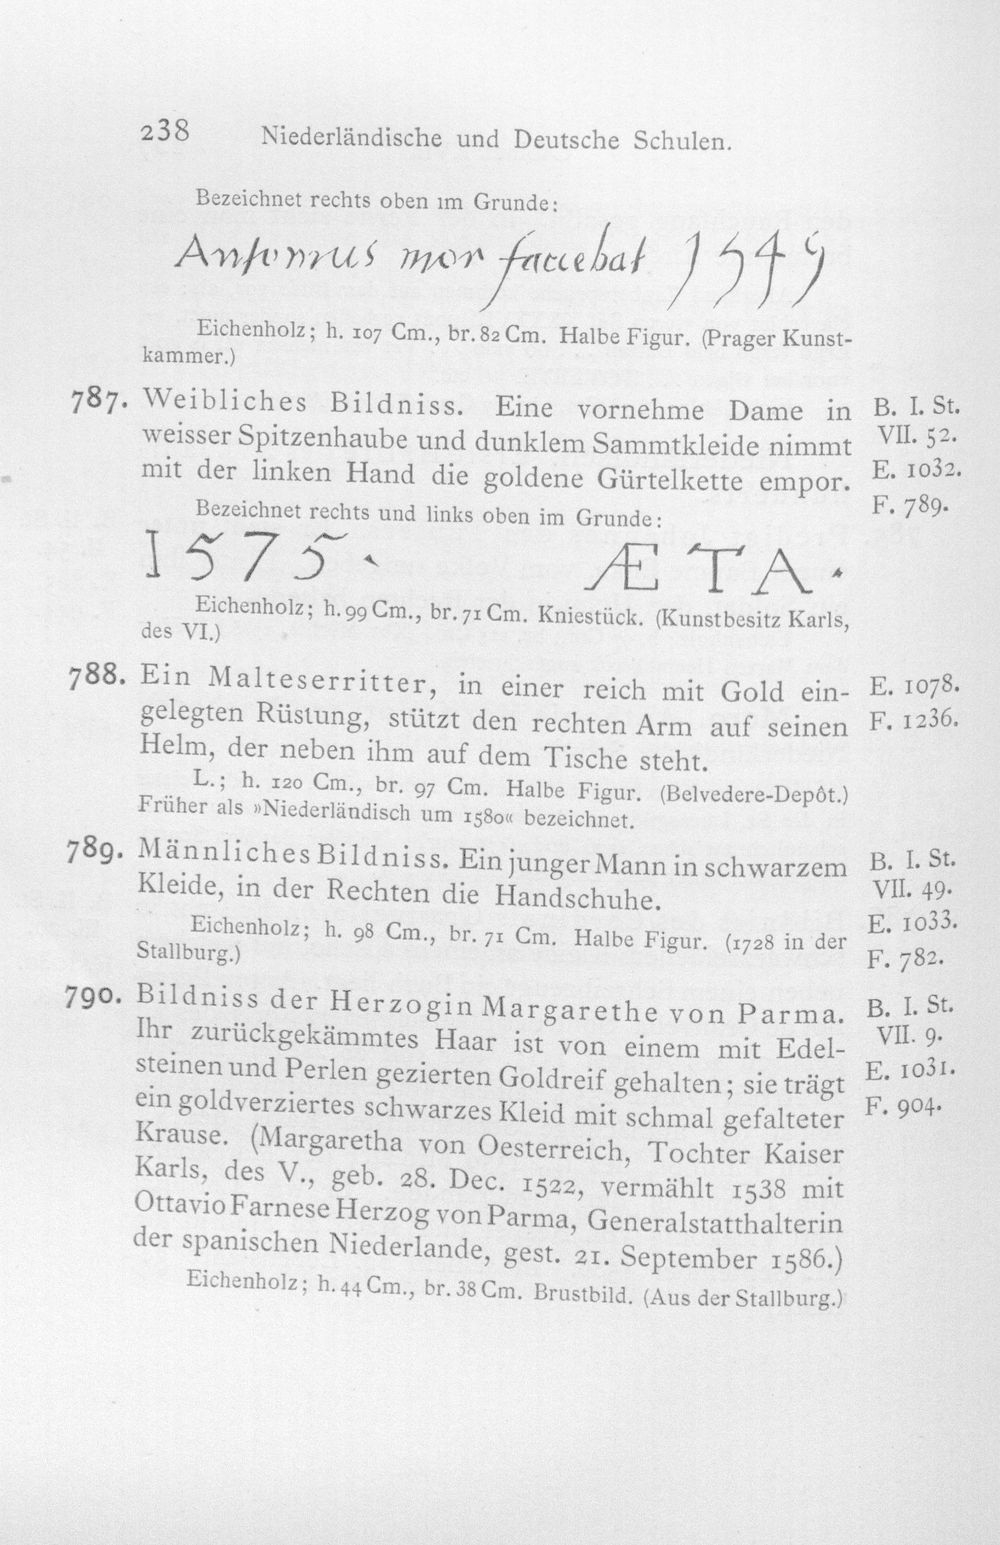 238 Niederländische und Deutsche Schulen.
Bezeichnet rechts oben im Grunde:
Antonius mor faciebat 1549
Eichenholz; h. 107 Cm., br. 82 Cm. Halbe Figur. (Prager Kunst-
kammer.)
787. Weibliches Bildniss. Eine vornehme Dame in B. I. St.
weisser Spitzenhaube und dunklem Sammtkleide nimmt VII. 52.
mit der linken Hand die goldene Gürtelkette empor. E. 1032.
Bezeichnet rechts und links oben im Grunde: F. 789.
1575. ÆTA.
Eichenholz; h. 99 Cm., br. 71 Cm. Kniestück. (Kunstbesitz Karls,
des VI.)
788. Ein Malteserritter, in einer reich mit Gold ein- E. 1078.
gelegten Rüstung, stützt den rechten Arm auf seinen F. 1236.
Helm, der neben ihm auf dem Tische steht.
L.; h. 120 Cm., br. 97 Cm. Halbe Figur. (Belvedere-Depôt.)
Früher als »Niederländisch um 1580« bezeichnet.
789. Männliches Bildniss. Ein junger Mann in schwarzem B. I. St.
Kleide, in der Rechten die Handschuhe. VII. 49.
Eichenholz; h. 98 Cm., br. 71 Cm. Halbe Figur. (1728 in der E. 1033.
Stallburg.) F. 782.
790. Bildniss der Herzogin Margarethe von Parma. B. I. St.
Ihr zurückgekämmtes Haar ist von einem mit Edel- VII. 9.
steinen und Perlen gezierten Goldreif gehalten; sie trägt E. 1031.
ein goldverziertes schwarzes Kleid mit schmal gefalteter F. 904.
Krause. (Margaretha von Oesterreich, Tochter Kaiser
Karls, des V., geb. 28. Dec. 1522, vermählt 1538 mit
Ottavio Farnese Herzog von Parma, Generalstatthalterin
der spanischen Niederlande, gest. 21. September 1586.)
Eichenholz; h. 44 Cm., br. 38 Cm. Brustbild. (Aus der Stallburg.)